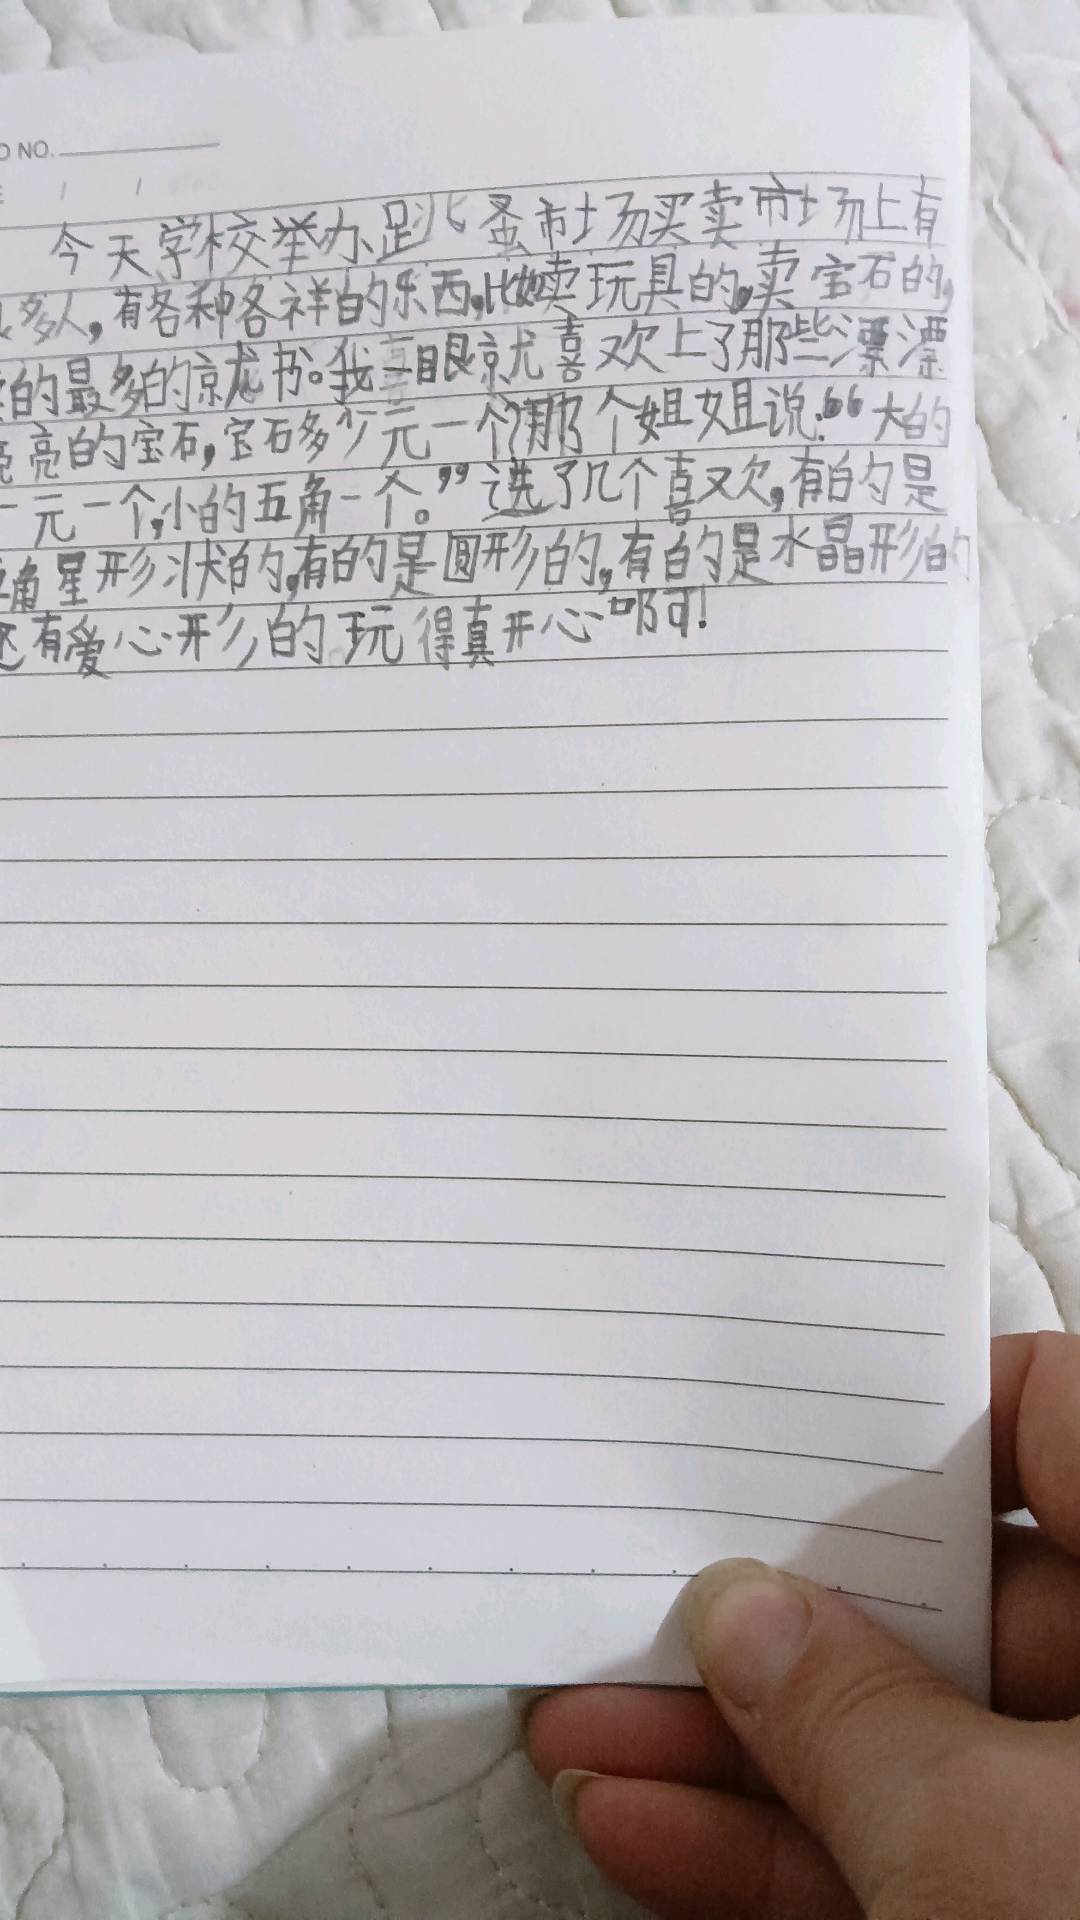 NO.
今天学校举办跳蚤市场买卖市场上有
多人,有各种各样的乐西,比如卖玩具的,卖宝石的,
的最多的就书。我一眼就喜欢上了那些漂漂
亮亮的宝石,宝石多少元一个?那个姐姐说:“大的
一元一个,小的五角一个。”选了几个喜欢,有的是
角星形状的,有的是圆形的,有的是水晶形的
还有爱心形的玩得真开心啊!